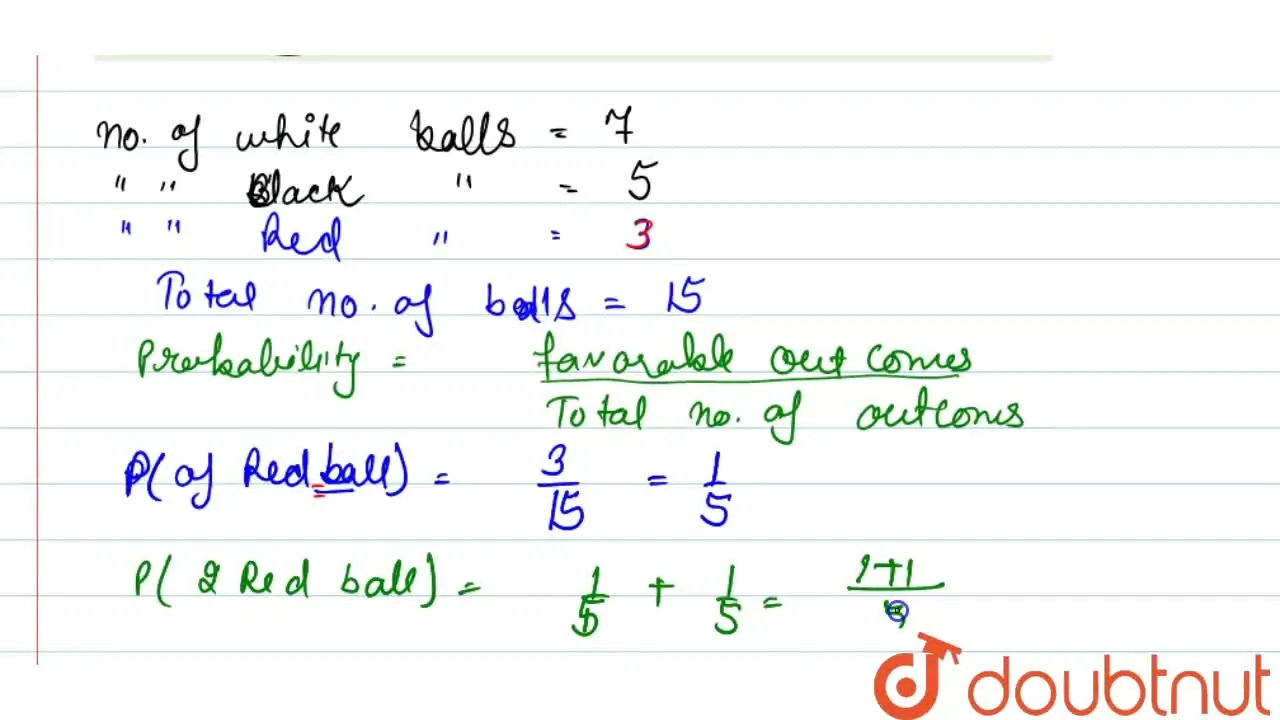 no. of white balls = 7
" " Black " = 5
" " Red " = 3
Total no. of balls = 15
Probability = favorable outcomes
Total no. of outcoms
P( of Red ball) = 3/15 = 1/5
P( 2 Red ball) = 1/5 + 1/5 = 1+1
doubtnut